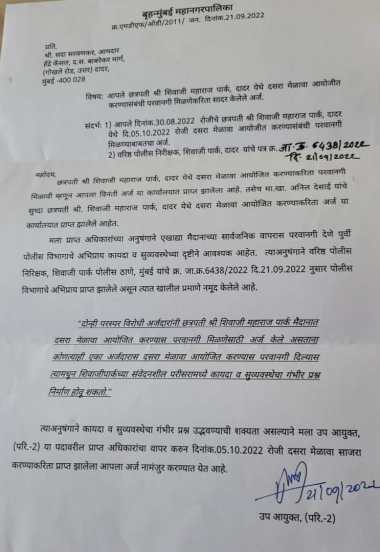 बृहन्मुंबई महानगरपालिका
क्र.एमडीएफ/ओडी/2011/ जन. दिनांक.21.09.2022
प्रति,
श्री. सदा सरवणकर, आमदार
हिंदे कॅसल, द.स. बाबरेकर मार्ग,
(गोखले रोड, उत्तर) दादर,
मुंबई -400 028
विषय: आपले छत्रपती श्री शिवाजी महाराज पार्क, दादर येथे दसरा मेळावा आयोजीत
करण्यासंबंधी परवानगी मिळणेकरिता सादर केलेले अर्ज.
संदर्भ: 1) आपले दिनांक.30.08.2022 रोजीचे छत्रपती श्री शिवाजी महाराज पार्क, दादर
येथे दि.05.10.2022 रोजी दसरा मेळावा आयोजीत करण्यासंबंधी परवानगी
मिळण्याबाबतचा अर्ज.
2) वरिष्ठ पोलीस निरीक्षक, शिवाजी पार्क, दादर यांचे पत्र क्र. जा.क्र 6438/2022
दि- 21/09/2022
महोदय,
छत्रपती श्री शिवाजी महाराज पार्क, दादर येथे दसरा मेळावा आयोजित करण्याकरिता परवानगी
मिळावी म्हणून आपला विनंती अर्ज या कार्यालयात प्राप्त झालेला आहे. तसेच मा.खा. अनिल देसाई यांचे
सुध्दा छत्रपती श्री. शिवाजी महाराज पार्क, दादर येथे दसरा मेळावा आयोजित करण्याकरिता अर्ज या
कार्यालयात प्राप्त झालेले आहेत.
मला प्राप्त अधिकारांच्या अनुषंगाने एखाद्या मैदानाच्या सार्वजनिक वापरास परवानगी देणे पुर्वी
पोलीस विभागाचे अभिप्राय कायदा व सुव्यवस्थेच्या दृष्टीने आवश्यक आहेत. त्याअनुषंगाने वरिष्ठ पोलीस
निरिक्षक, शिवाजी पार्क पोलीस ठाणे, मुंबई यांचे क्र. जा.क्र.6438/2022 दि.21.09.2022 नुसार पोलीस
विभागाचे अभिप्राय प्राप्त झालेले असून त्यात खालील प्रमाणे नमूद केलेले आहे.
"दोन्ही परस्पर विरोधी अर्जदारांनी छत्रपती श्री शिवाजी महाराज पार्क मैदानात
दसरा मेळावा आयोजित करण्यास परवानगी मिळणेसाठी अर्ज केले असताना
कोणत्याही एका अर्जदारास दसरा मेळावा आयोजित करण्यास परवानगी दिल्यास
त्यामधून शिवाजीपार्कच्या संवेदनशील परीसरामध्ये कायदा व सुव्यवस्थेचा गंभीर प्रश्न
निर्माण होवू शकतो."
त्याअनुषंगाने कायदा व सुव्यवस्थेचा गंभीर प्रश्न उद्भवण्याची शक्यता असल्याने मला उप आयुक्त,
(परि.-2) या पदावरील प्राप्त अधिकारांचा वापर करुन दिनांक.05.10.2022 रोजी दसरा मेळावा साजरा
करण्याकरिता प्राप्त झालेला आपला अर्ज नामंजुर करण्यात येत आहे.
21/09/2022
उप आयुक्त, (परि.-2)